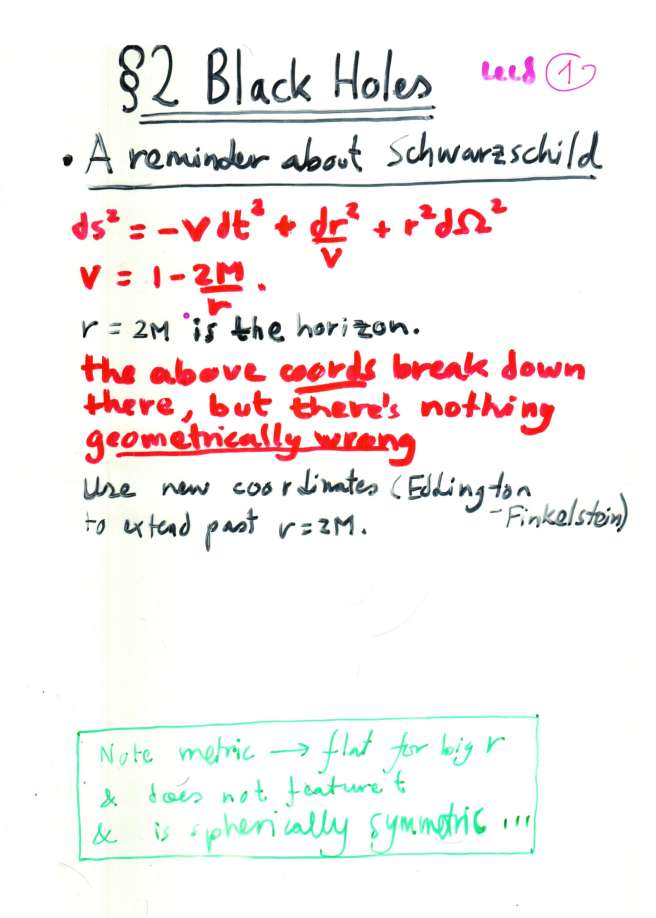 §2 Black Holes ①
• A reminder about Schwarzschild
ds² = -Vdt² + dr²/V + r²dΩ²
V = 1 - 2M/r.
r = 2M is the horizon.
the above coords break down
there, but there's nothing
geometrically wrong
Use new coordinates (Eddington
-Finkelstein)
to extend past r=2M.
Note metric → flat for big r
& does not feature t
& is spherically symmetric ...